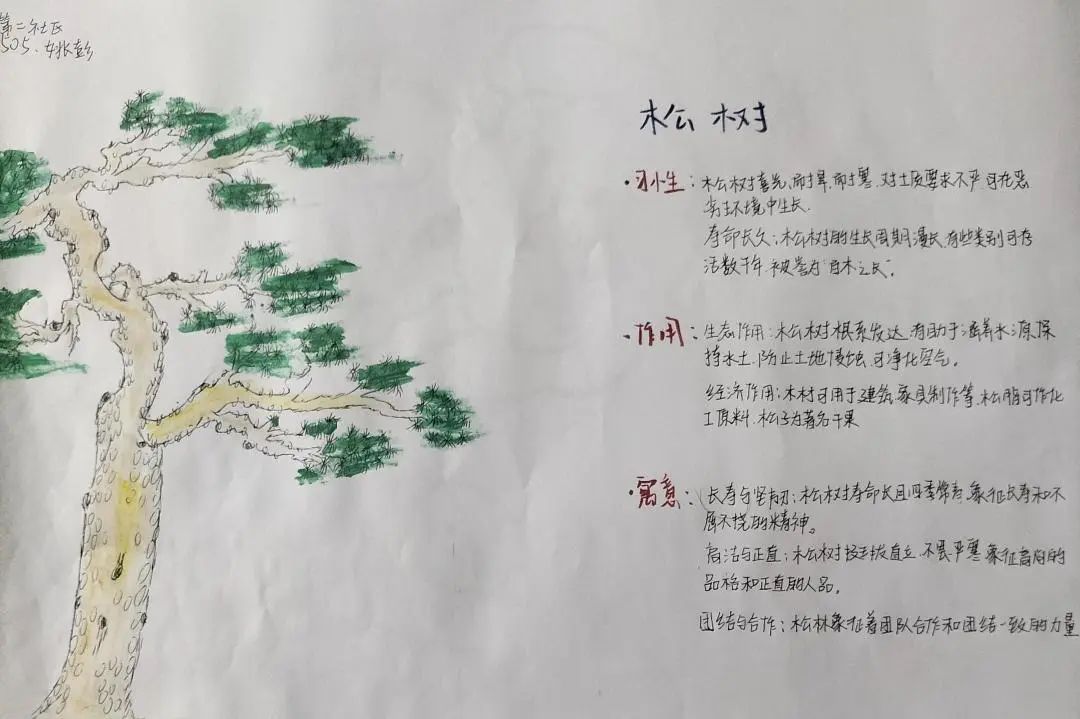 第二社区
505.姚彭
松树
·习性：松树喜光,耐旱,耐寒.对土质要求不严.可在恶
劣环境中生长.
寿命长久：松树的生长周期漫长,有些类别可存
活数千年,被誉为“百木之长”。
·作用：生态作用：松树根系发达,有助于涵养水源,保
持水土,防止土地侵蚀,可净化空气。
经济作用：木材可用于建筑,家具制作等,松脂可作化
工原料,松子为著名干果
·寓意：长寿与坚韧：松树寿命长且四季常青,象征长寿和不
屈不挠的精神。
高洁与正直：松树挺拔直立,不畏严寒,象征高尚的
品格和正直的人品。
团结与合作：松林象征着团队合作和团结一致的力量